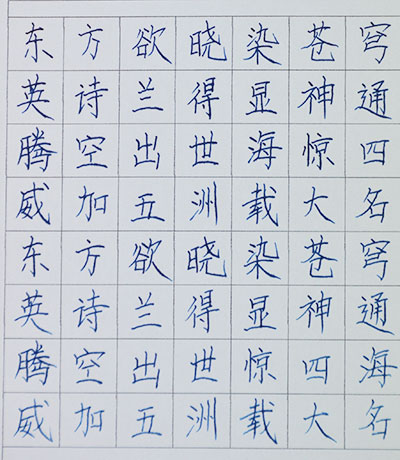 东方欲晓染苍穹
英诗兰得显神通
腾空出世海惊四
威加五洲载大名
东方欲晓染苍穹
英诗兰得显神通
腾空出世惊四海
威加五洲载大名